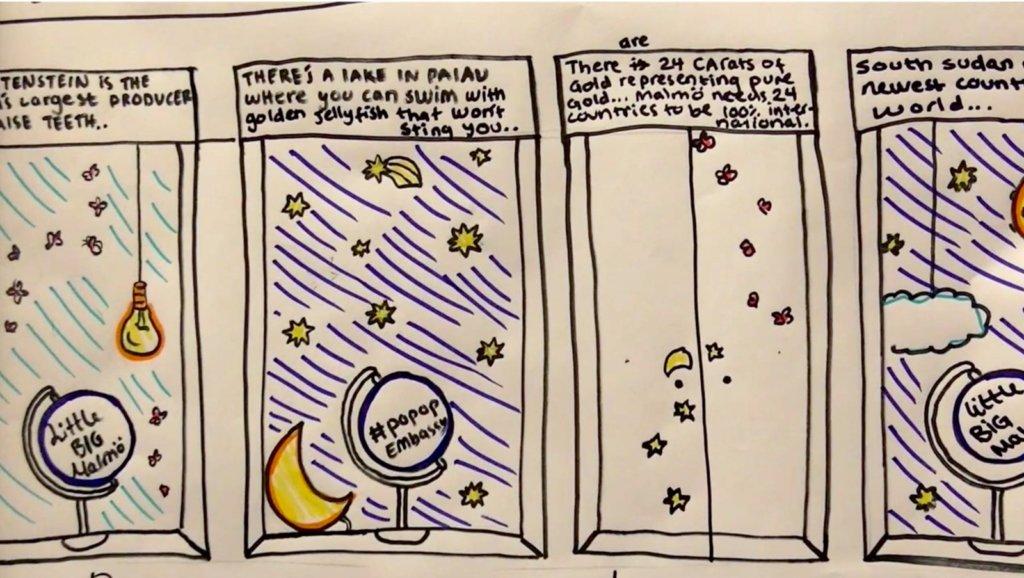 TENSTEIN IS THE
'S Largest PRODUCER
TEETH..
Little
BIG
Malmö
THERE'S A LAKE IN PALAU
where you can swim with
golden jellyfish that won't
sting you..
#popop
Embassy
are
There is 24 CArats of
Gold representing pure
gold... Malmö needs 24
countries to be 100% inter-
national.
South Sudan
newest count
world...
Little
BIG
Mal